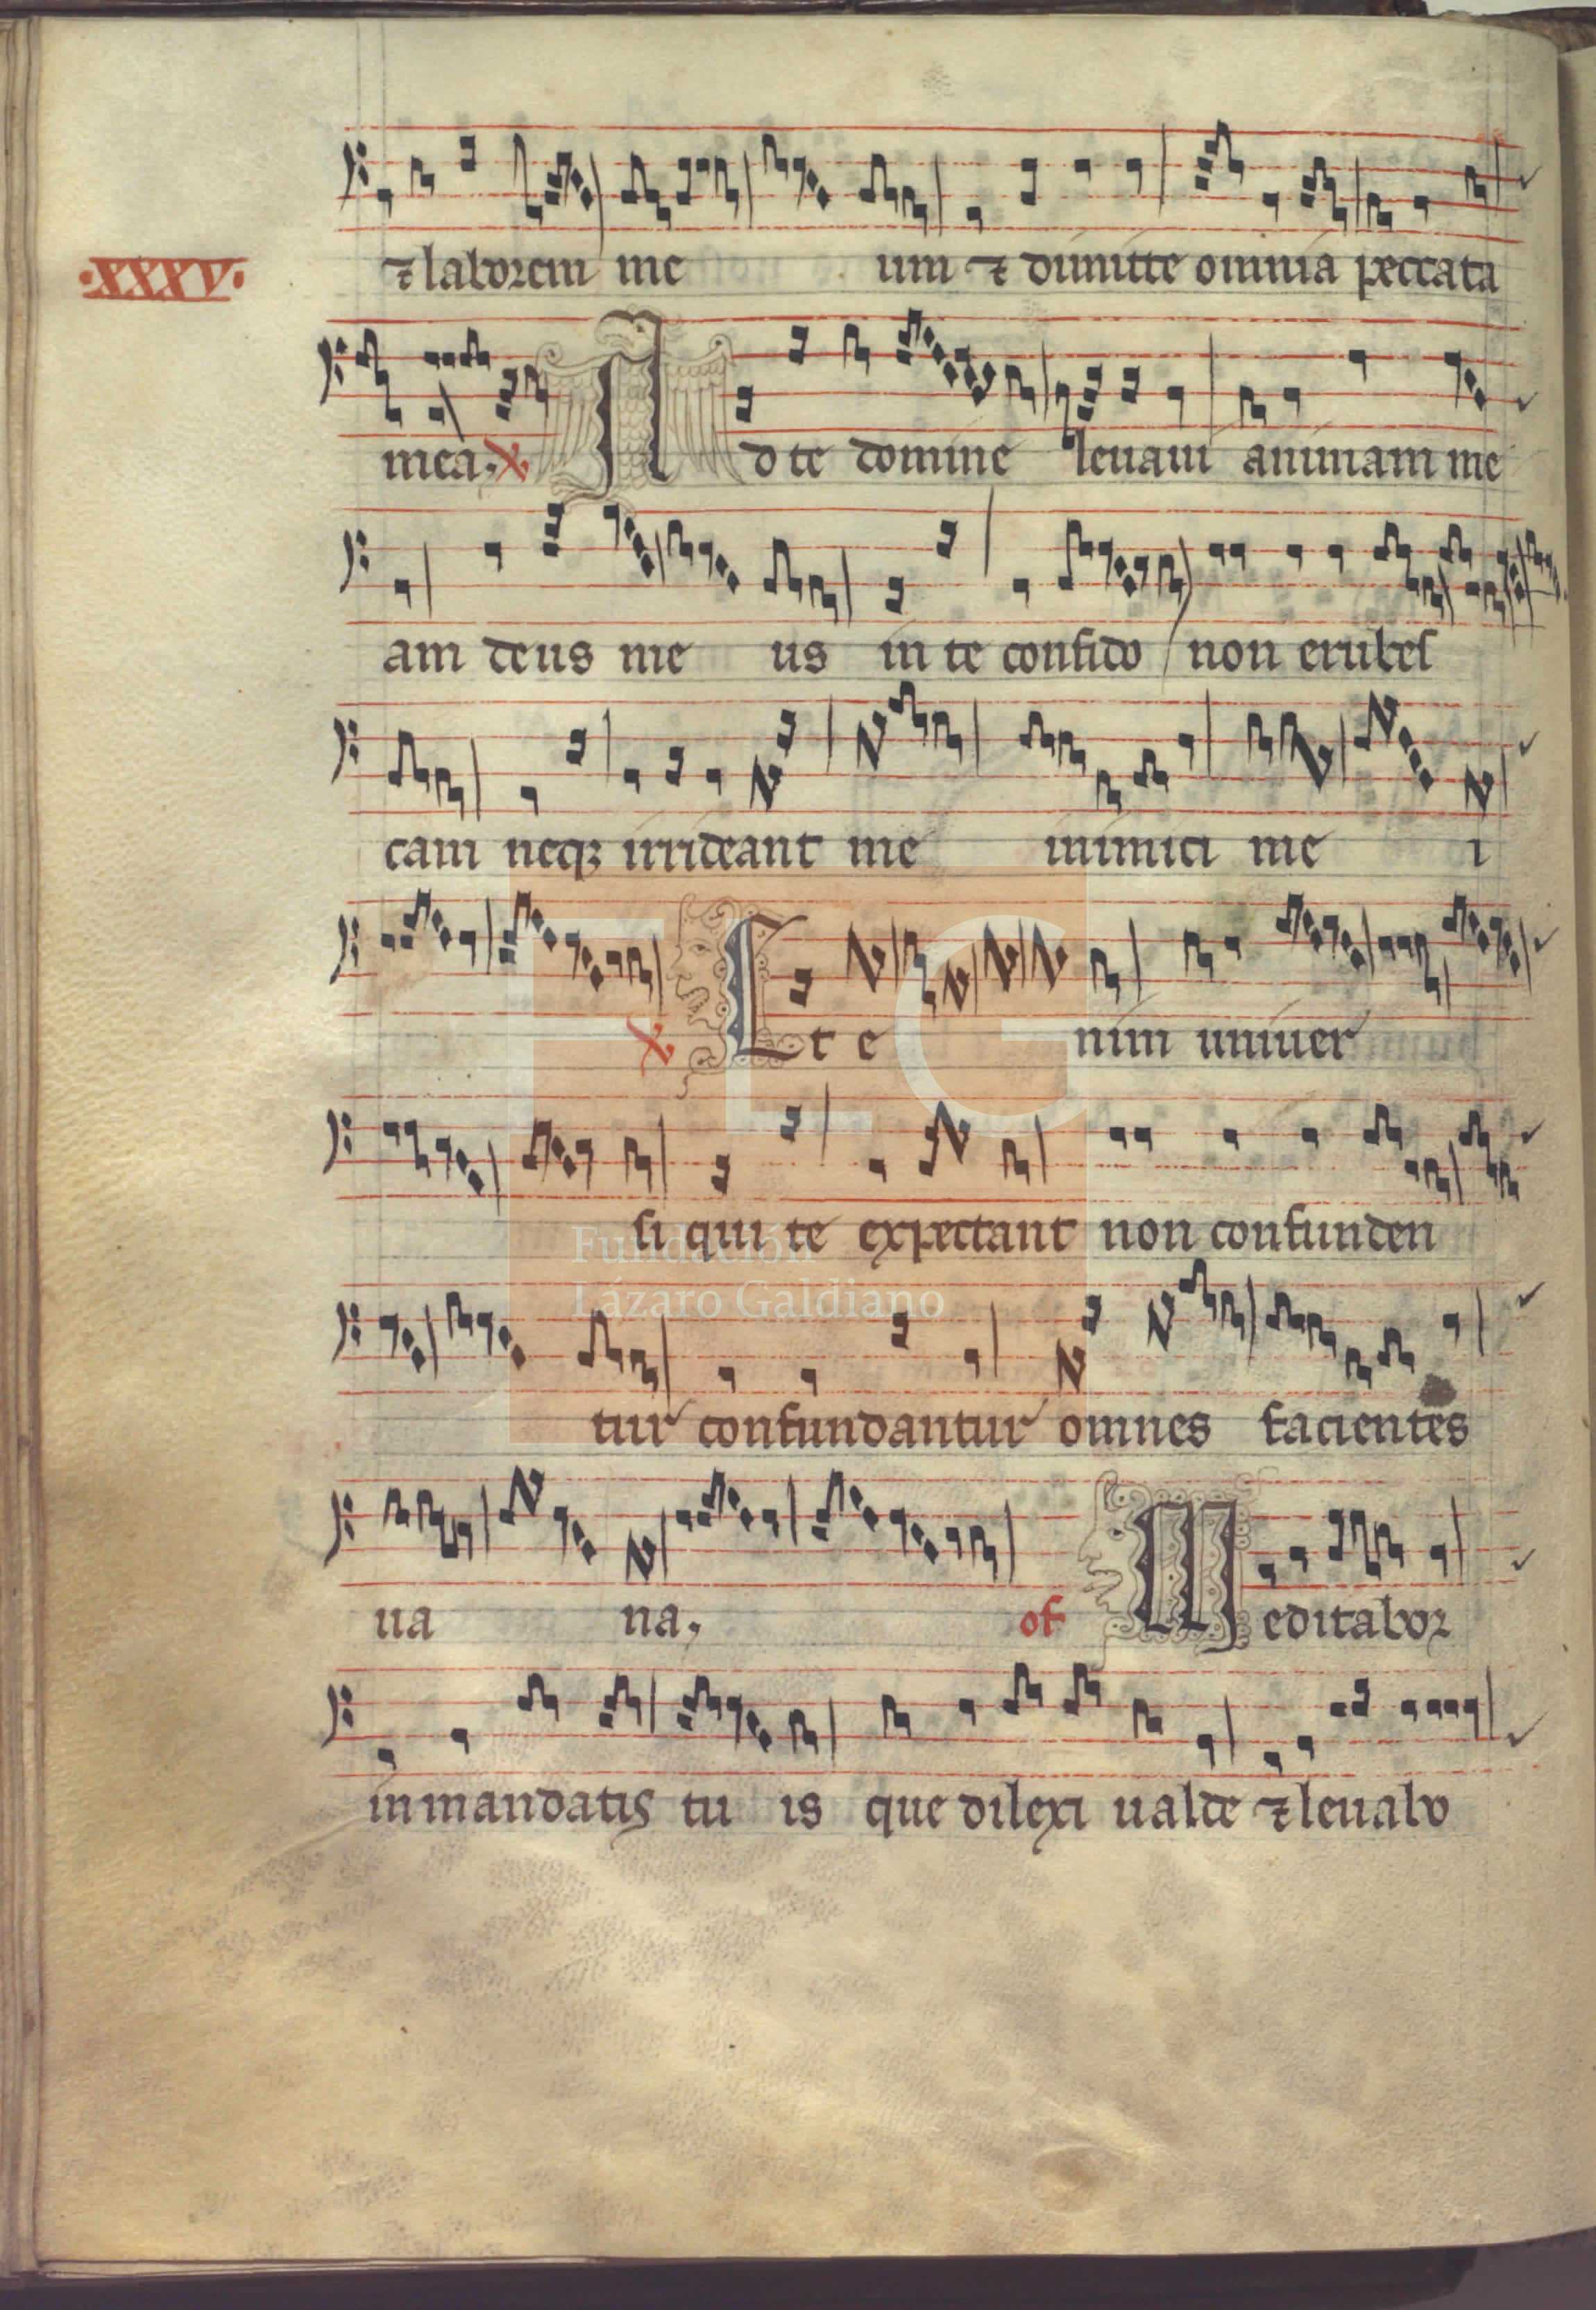 ·XXXV·
⁊ laborem me um ⁊ dimitte omnia peccata
mea. ℣ Ad te domine leuaui animam me
am deus me us in te confido / non erubes
cam neqꝫ irrideant me inimici me i
℣ Et e nim uniuer
si qui te expectant non confunden
tur confundantur omnes facientes
ua na. of Meditabor
in mandatis tu is que dilexi ualde ⁊ leuabo
FLG
Fundación
Lázaro Galdiano